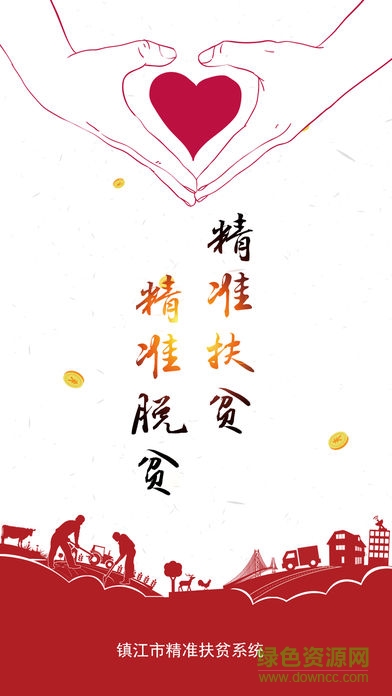 精准扶贫
精准脱贫
镇江市精准扶贫系统
绿色资源网
www.downcc.com